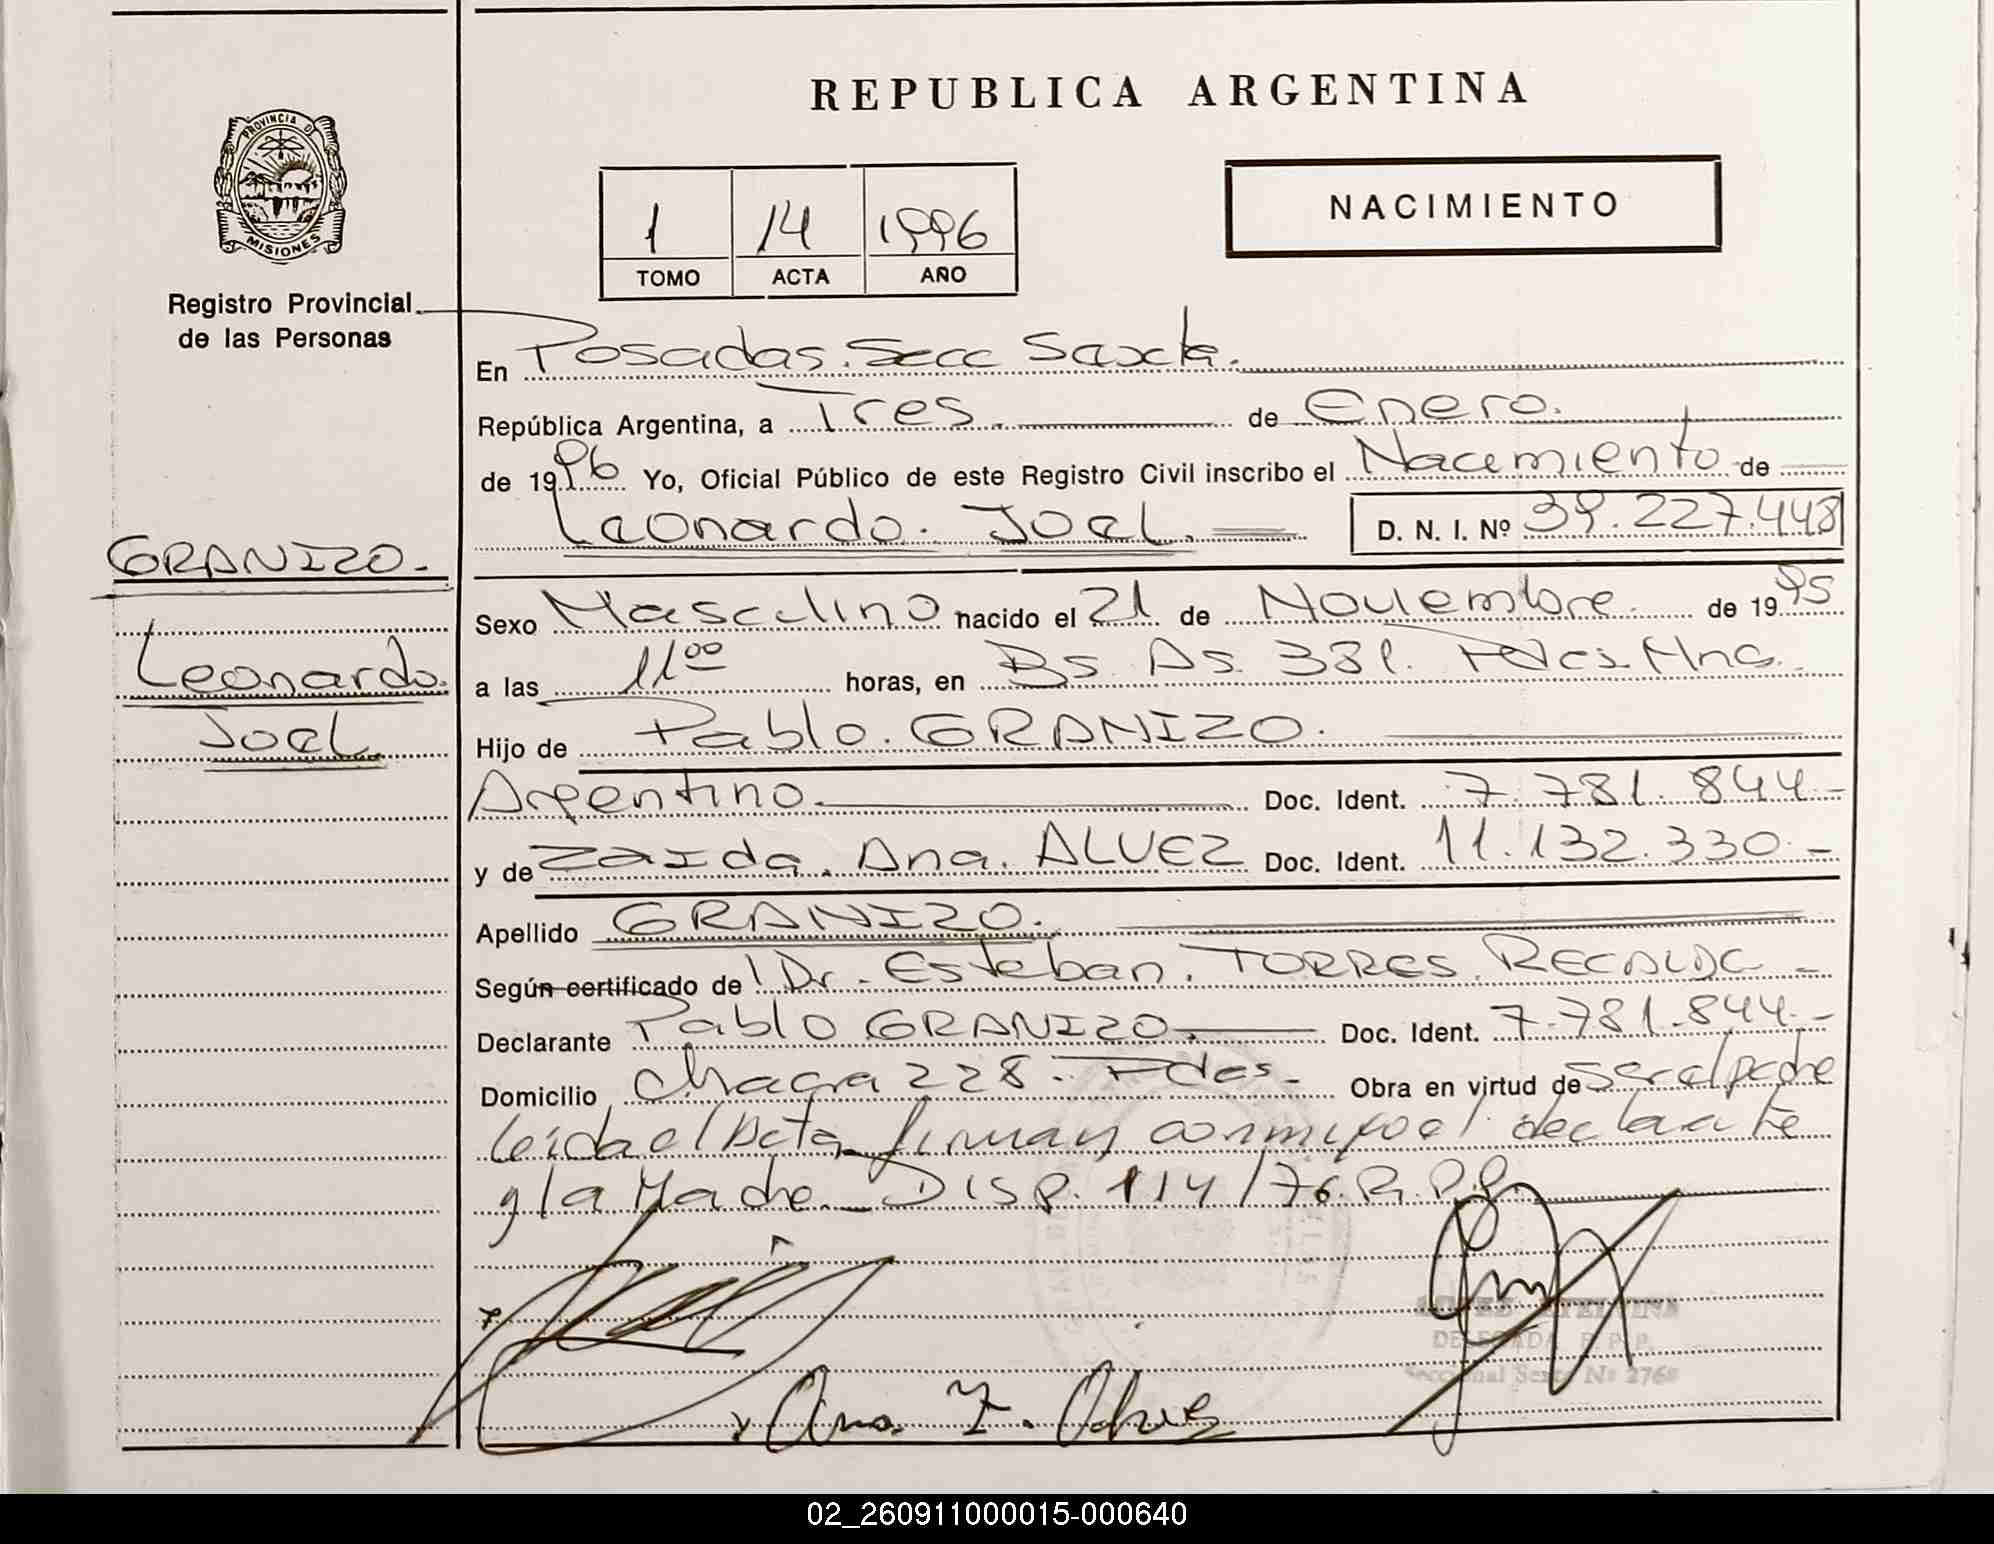 REPUBLICA ARGENTINA
PROVINCIA DE
MISIONES
Registro Provincial
de las Personas
1 14 1996
TOMO ACTA AÑO
NACIMIENTO
En Posadas. Secc Sexta.
República Argentina, a Tres. de Enero.
de 1996 Yo, Oficial Público de este Registro Civil inscribo el Nacemiento de
Leonardo. Joel. D. N. I. Nº 39.227.448
GRANIZO.
Leonardo.
Joel.
Sexo Masculino nacido el 21 de Noviembre. de 1995
a las 11⁰⁰ horas, en Bs. As. 381. Pdas. Mnes.
Hijo de Pablo. GRANIZO.
Argentino. Doc. Ident. 7.781.844.-
y de Zaida. Ana. ALVEZ Doc. Ident. 11.132.330.-
Apellido GRANIZO.
Según certificado de l Dr. Esteban. TORRES. RECALDE -
Declarante Pablo GRANIZO. Doc. Ident. 7.781.844.-
Domicilio Chacra 228. Pdas. Obra en virtud de ser el padre
leida el Acta, firman conmigo el declarante
y la Madre. DISP. 114/76.R.P.P.
Ana Z. Alvez
DELEGADA R. P. P.
Seccional Sexta Nº 2768
02_260911000015-000640